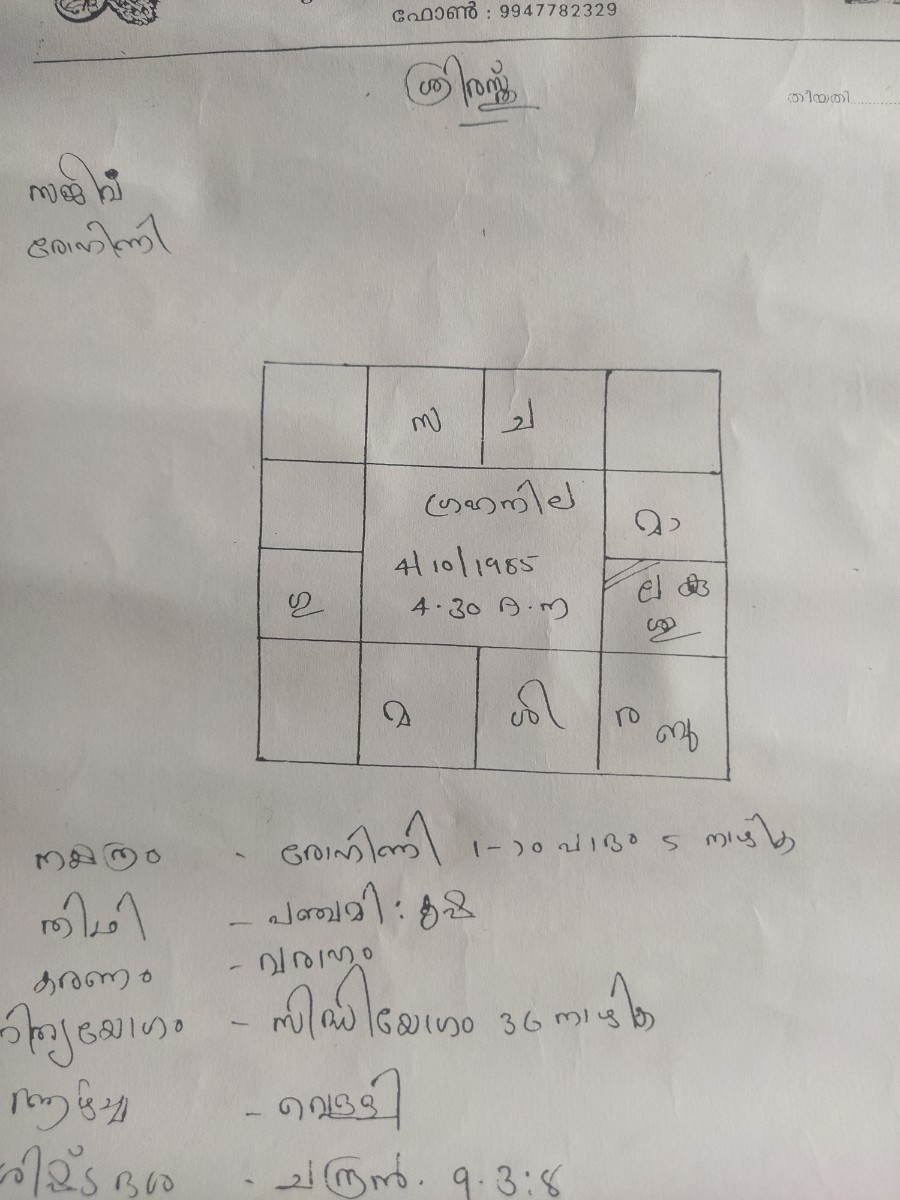 ഫോൺ : 9947782329
ശ്രീരസ്തു
തീയതി..........
സജീവ്
രോഹിണി
സ ച
ഗ്രഹനില
മാ
4/10/1985
ല കു
4.30 A.m
ഗു
ശു
മ ശി ര ബു
നക്ഷത്രം - രോഹിണി 1-ാം പാദം 5 നാഴിക
തിഥി - പഞ്ചമി :
കരണം - വരാഹം
നിത്യയോഗം - സിദ്ധിയോഗം 36 നാഴിക
ആഴ്ച - വെള്ളി
ശിഷ്ട ദശ - ചന്ദ്രൻ. 9.3:8